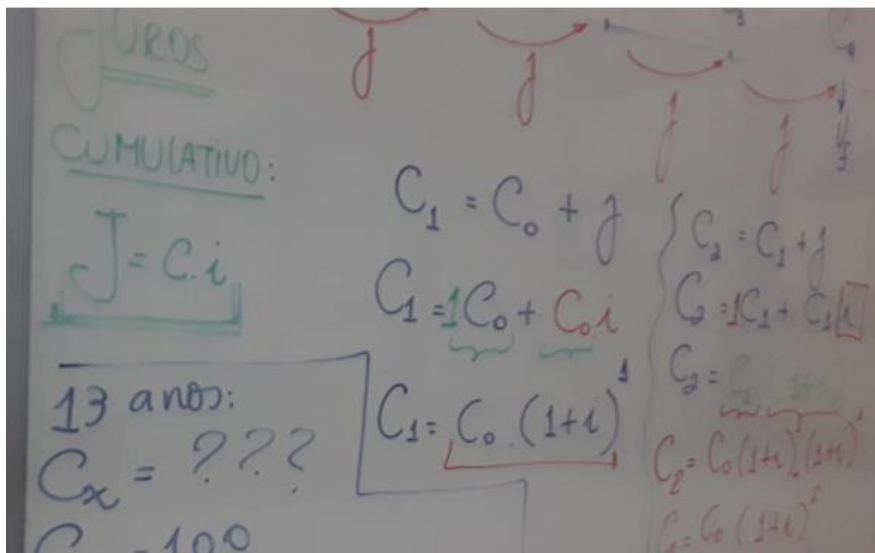 JUROS
CUMULATIVO:
J = C.i
13 anos:
Cx = ???
j
j
j
j
C1 = C0 + j
C1 = 1C0 + C0.i
C1 = C0.(1+i)^1
C2 = C1 + j
C2 = 1C1 + C1 i
C2 = C1 (1+i)
C2 = C0(1+i)^1(1+i)^1
C0 (1+i)^2